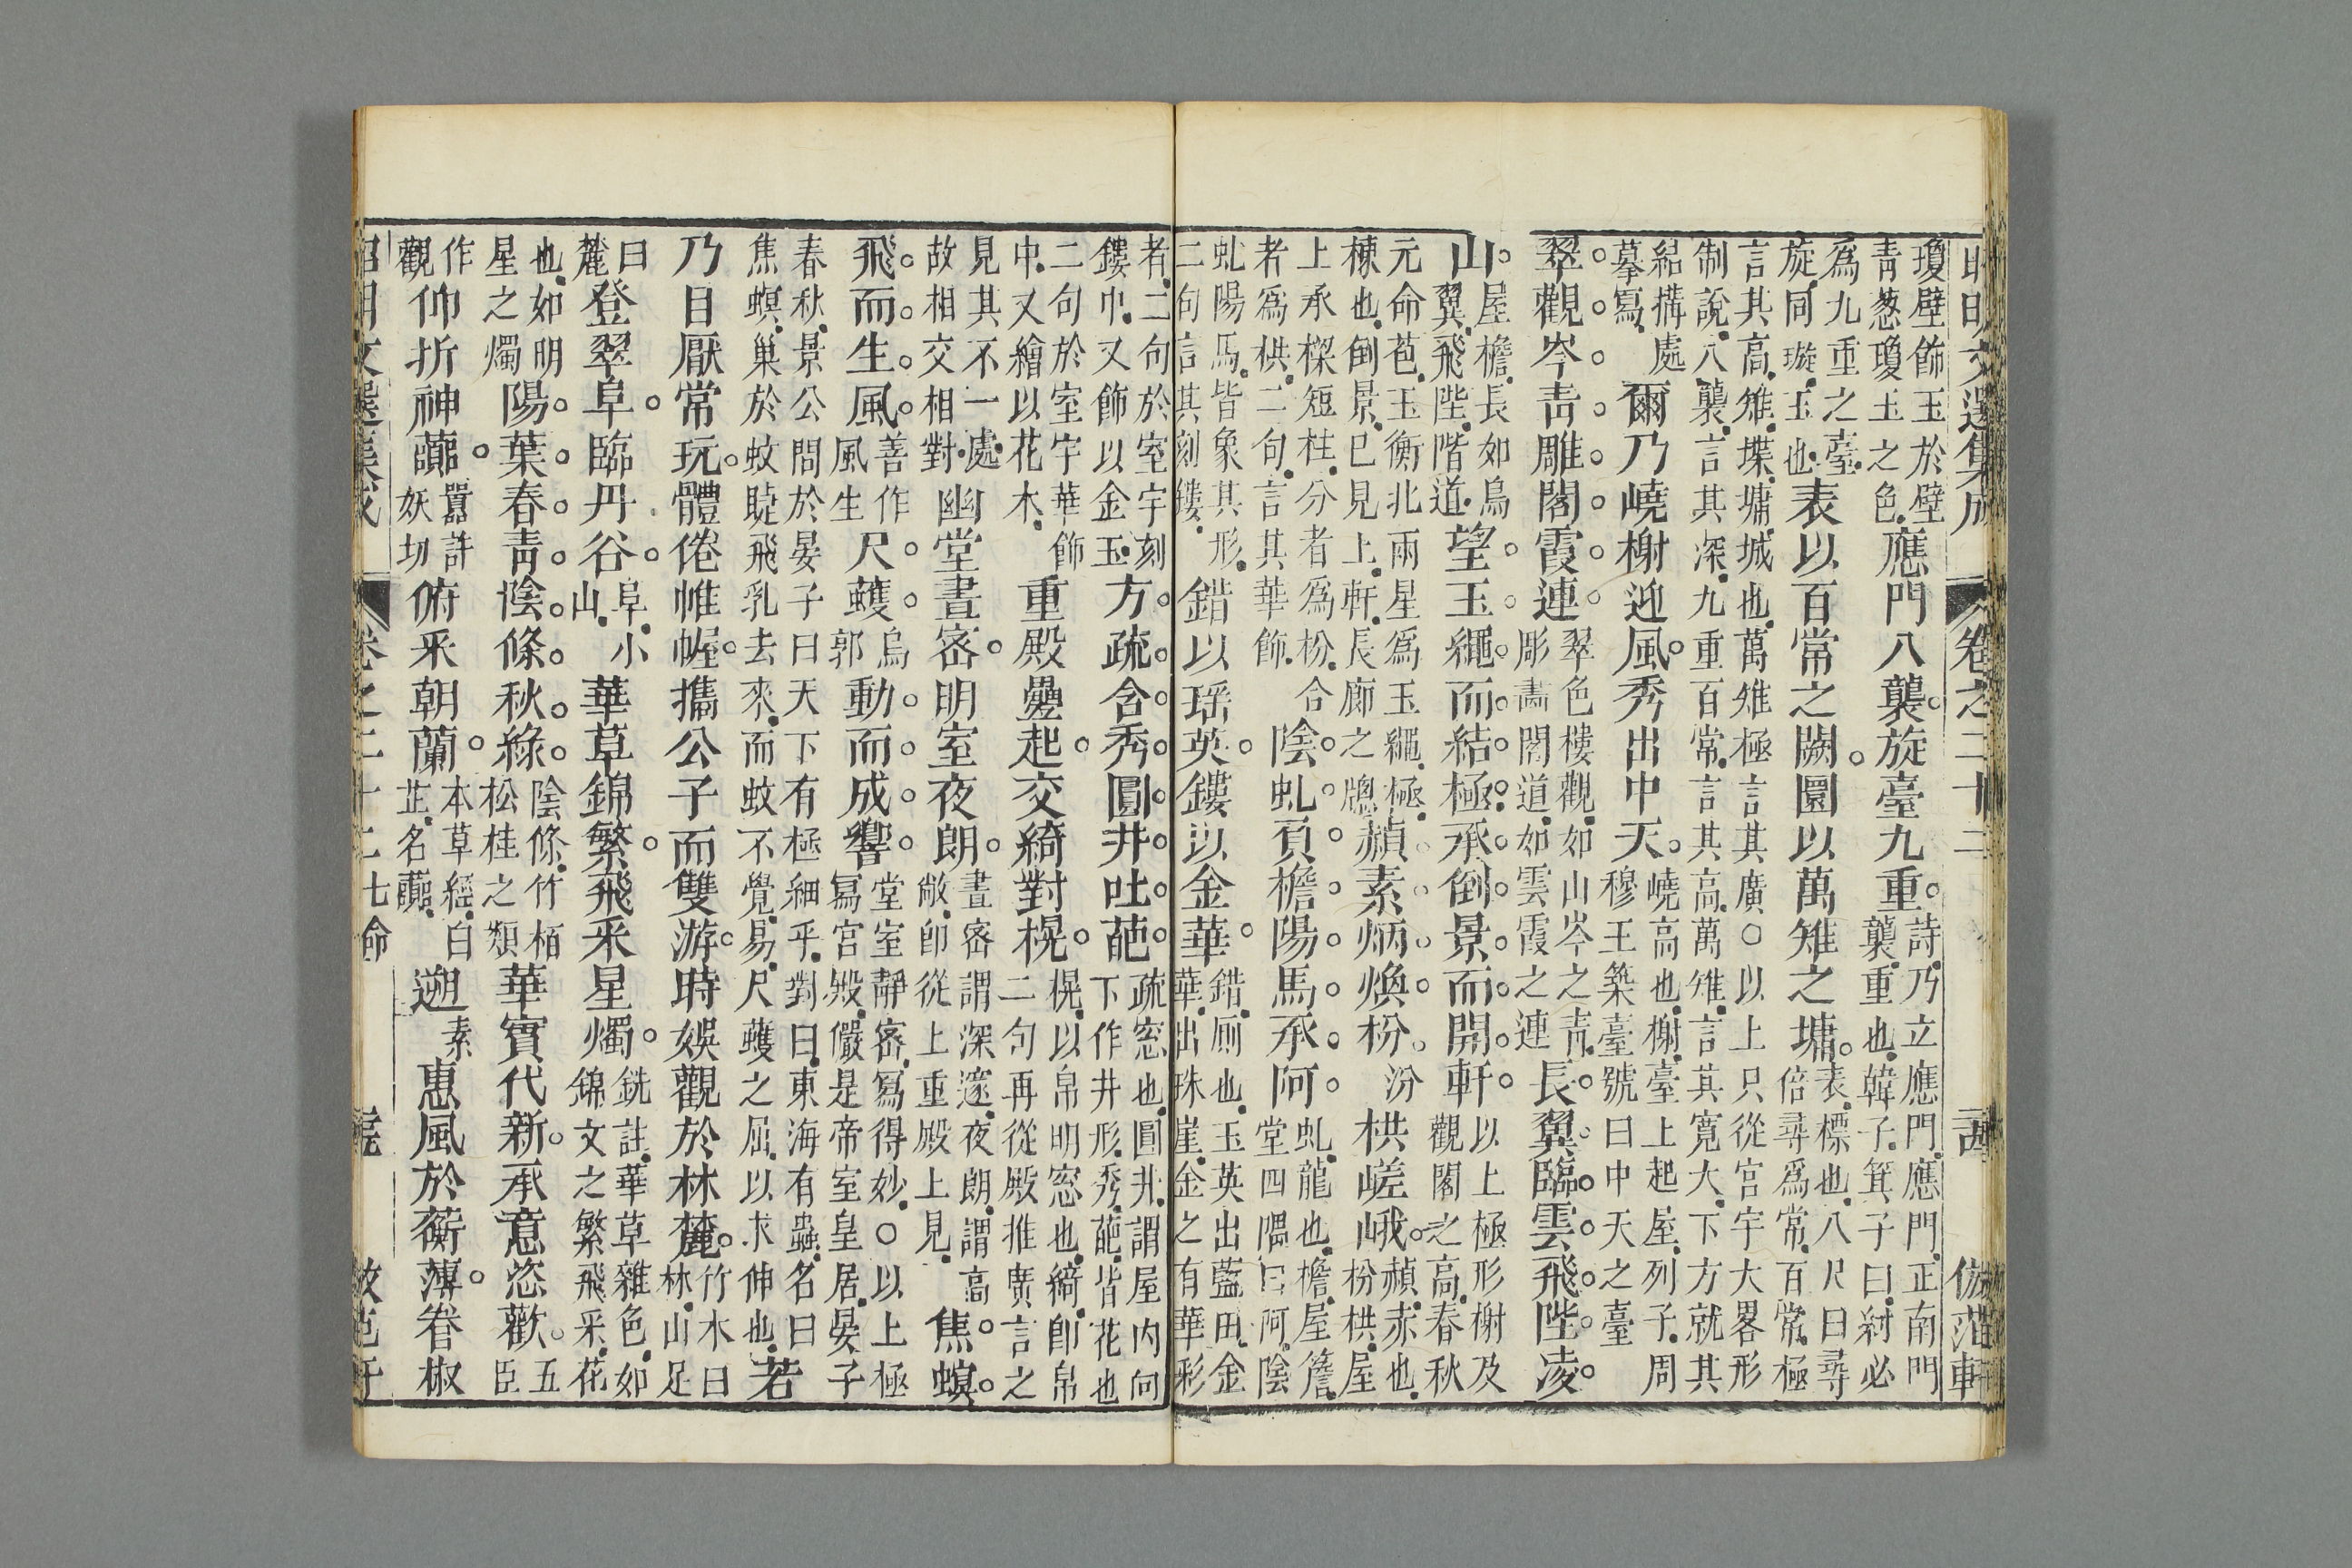 昭明文選集成 卷之三十二
瓊壁飾玉於壁
青葱瓊玉之色
應門八襲旋臺九重
詩乃立應門應門正南門
襲重也韓子箕子曰紂必
爲九重之臺
旋同璇玉也
表以百常之闕圜以萬雉之墉
表標也八尺曰尋
倍尋爲常百常極
言其高雉堞墉城也萬雉極言其廣○以上只從宮宇大畧形
制說八襲言其深九重百常言其高萬雉言其寛大下方就其
結構處
摹寫
爾乃嶢榭迎風秀出中天
嶢高也榭臺上起屋列子周
穆王築臺號曰中天之臺
翠觀岑靑雕閣霞連
翠色樓觀如山岑之靑
彫畵閣道如雲霞之連
長翼臨雲飛陛凌
山
屋檐長如鳥
翼飛陛階道
望玉繩而結極承倒景而開軒
以上極形榭及
觀閣之高春秋
元命苞玉衡北兩星爲玉繩極
棟也倒景巳見上軒長廊之牕
赬素炳煥枌
汾
栱嵯峨
赬赤也
枌栱屋
上承檪短柱分者爲枌合
者爲栱二句言其華飾
陰虬負檐陽馬承阿
虬龍也檐屋簷
堂四隅曰阿陰
虬陽馬皆象其形
二句言其刻鏤
錯以瑶英鏤以金華
錯厠也玉英出藍田金
華出珠崖金之有華彩
者二句於室宇刻
鏤巾又飾以金玉
方疏含秀圓井吐葩
疏窓也圓井謂屋内向
下作井形秀葩皆花也
二句於室宇華飾
中又繪以花木
重殿疊起交綺對榥
榥以帛明窓也綺卽帛
二句再從殿推廣言之
見其不一處
故相交相對
幽堂晝密明室夜朗
晝密謂深邃夜朗謂高
敞卽從上重殿上見
焦螟
飛而生風
善作
風生
尺蠖
烏
郭
動而成響
堂室靜密寫得妙○以上極
寫宮殿儼是帝室皇居晏子
春秋景公問於晏子曰天下有極細乎對曰東海有蟲名曰
焦螟巢於蚊睫飛乳去來而蚊不覺易尺蠖之屈以求伸也
若
乃目厭常玩體倦帷幄攜公子而雙游時娛觀於林麓
竹木曰
林山足
曰
麓
登翠阜臨丹谷
阜小
山
華草錦繁飛采星燭
銑註華草雜色如
錦文之繁飛采花
也如明
星之燭
陽葉春靑陰條秋綠
陰條竹栢
松桂之類
華實代新承意恣歡
五
臣
作
觀
仰折神虈
囂許
妖切
俯采朝蘭
本草經白
芷名虈
遡
素
惠風於蘅薄眷椒
昭明文選集成 卷之三十二 七命